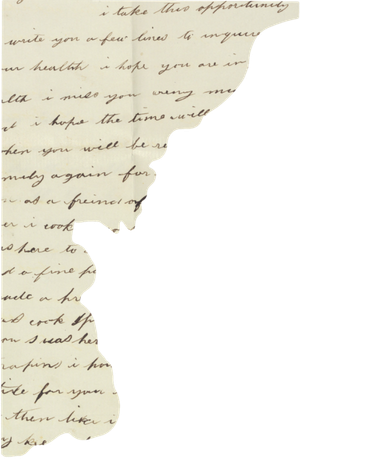 i take this opportunity
write you a few lines to inquire
ur health i hope you are in
alth i miss you veray mu
i hope the time will
hen you will be re
amily again for
as a freind of
er i cook
as here to
d a fine
ade a pr
cook
on was her
rapins i hop
for your
then like i